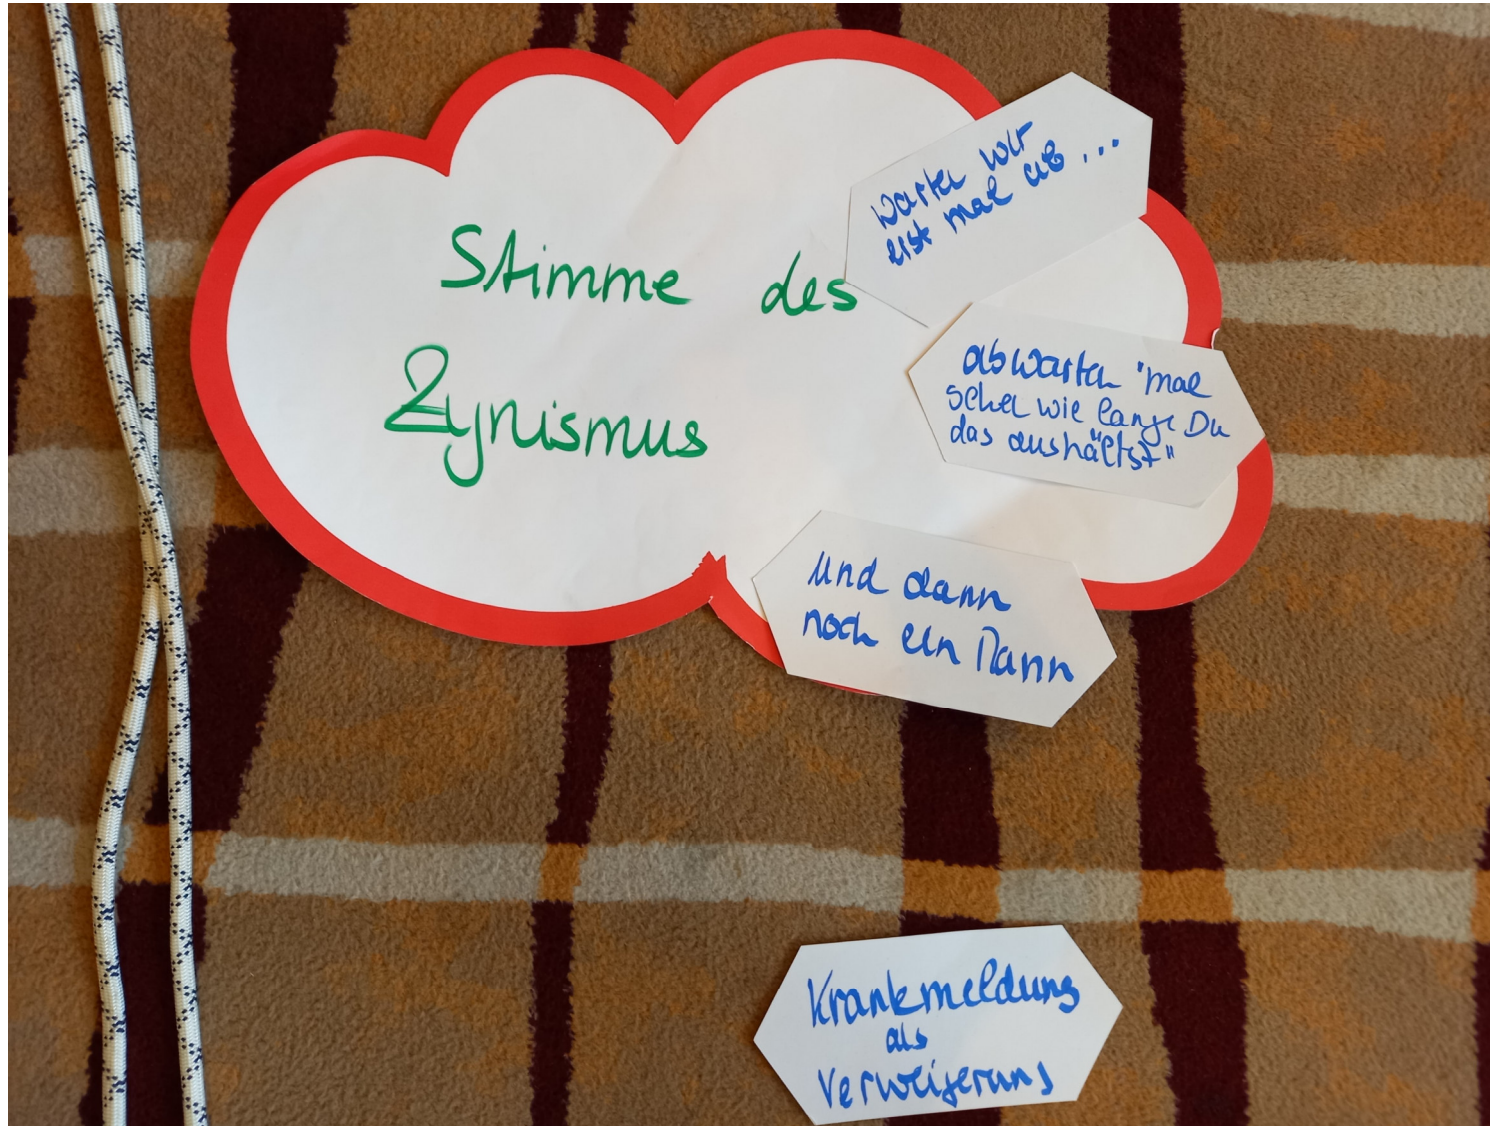 Stimme des
Zynismus
warten wir
erst mal ab ...
abwarten "mal
sehen wie lange Du
das aushältst"
und dann
noch ein Mann
Krankmeldung
als
Verweigerung